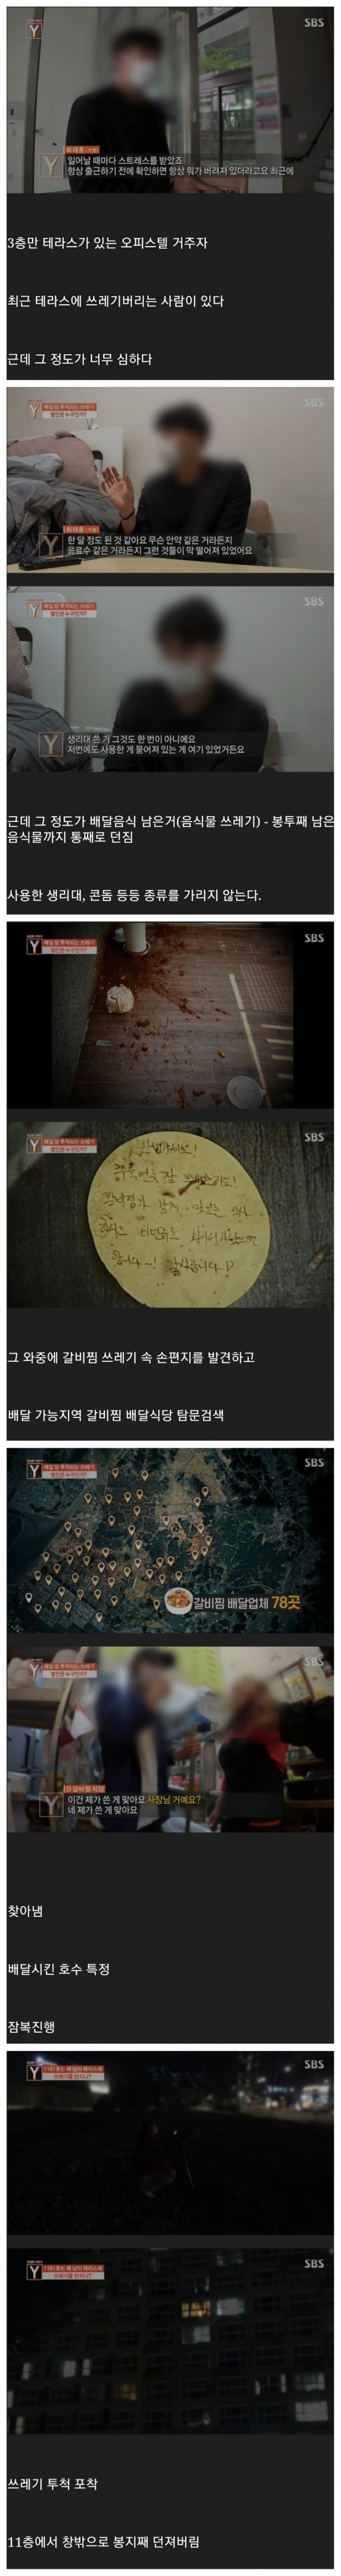 SBS
Y
최재훈 (가명)
일어날 때마다 스트레스를 받았죠
항상 출근하기 전에 확인하면 항상 뭐가 버려져 있더라고요 최근에
3층만 테라스가 있는 오피스텔 거주자
최근 테라스에 쓰레기버리는 사람이 있다
근데 그 정도가 너무 심하다
매일 밤 투척되는 쓰레기
범인은 누구인가?
SBS
최재훈 (가명)
한 달 정도 된 것 같아요 무슨 안약 같은 거라든지
음료수 같은 거라든지 그런 것들이 막 떨어져 있었어요
매일 밤 투척되는 쓰레기
범인은 누구인가?
SBS
생리대 쓴 거 그것도 한 번이 아니에요
저번에도 사용한 게 뜯어져 있는 게 여기 있었거든요
근데 그 정도가 배달음식 남은거(음식물 쓰레기) - 봉투째 남은
음식물까지 통째로 던짐
사용한 생리대, 콘돔 등등 종류를 가리지 않는다.
매일 밤 투척되는 쓰레기
범인은 누구인가?
SBS
매일 밤 투척되는 쓰레기
범인은 누구인가?
SBS
그 와중에 갈비찜 쓰레기 속 손편지를 발견하고
배달 가능지역 갈비찜 배달식당 탐문검색
매일 밤 투척되는 쓰레기
범인은 누구인가?
SBS
갈비찜 배달업체 78곳
매일 밤 투척되는 쓰레기
범인은 누구인가?
SBS
D 갈비찜 식당
이건 제가 쓴 게 맞아요 사장님 거예요?
네 제가 쓴 게 맞아요
찾아냄
배달시킨 호수 특정
잠복진행
1161호는 왜 남의 테라스에
쓰레기를 던지나?
SBS
1161호는 왜 남의 테라스에
쓰레기를 던지나?
SBS
쓰레기 투척 포착
11층에서 창밖으로 봉지째 던져버림